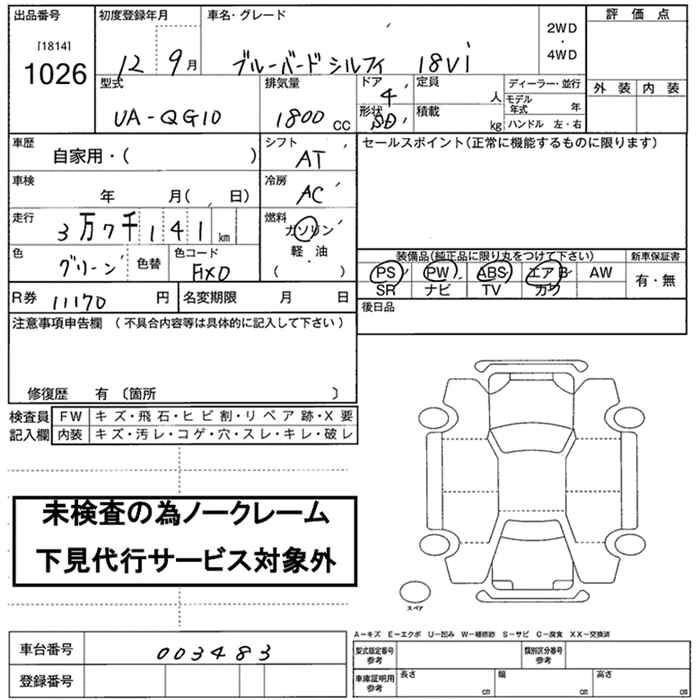 出品番号
[1814]
1026
初度登録年月
12 9月
車名・グレード
ブルーバード シルフィ 18Vi
2WD
・
4WD
評価点
外装 内装
型式
UA-QG10
排気量
1800 CC
ドア
4
形状
SD
定員
人
積載
kg
ディーラー・並行
モデル年式 年
ハンドル 左・右
車歴
自家用・( )
シフト
AT
セールスポイント(正常に機能するものに限ります)
車検
年 月( 日)
冷房
AC
走行
3万7千141 km
燃料
ガソリン
軽・油
( )
色
グリーン
色替
色コード
装備品(純正品に限り丸をつけて下さい)
新車保証書
PS PW ABS エアB AW
有・無
SR ナビ TV カワ
R券 11170 円
名変期限 月 日
後日品
注意事項申告欄 (不具合内容等は具体的に記入して下さい)
修復歴 有 〔箇所 〕
検査員
記入欄
FW キズ・飛石・ヒビ割・リペア跡・X要
内装 キズ・汚レ・コゲ・穴・スレ・キレ・破レ
未検査の為ノークレーム
下見代行サービス対象外
スペア
A-キズ E-エクボ U-凹み W-補修跡 S-サビ C-腐食 XX-交換済
車台番号 003483
登録番号
型式指定番号
参考
類別区分番号
参考
車庫証明用
参考
長さ cm
幅 cm
高さ cm